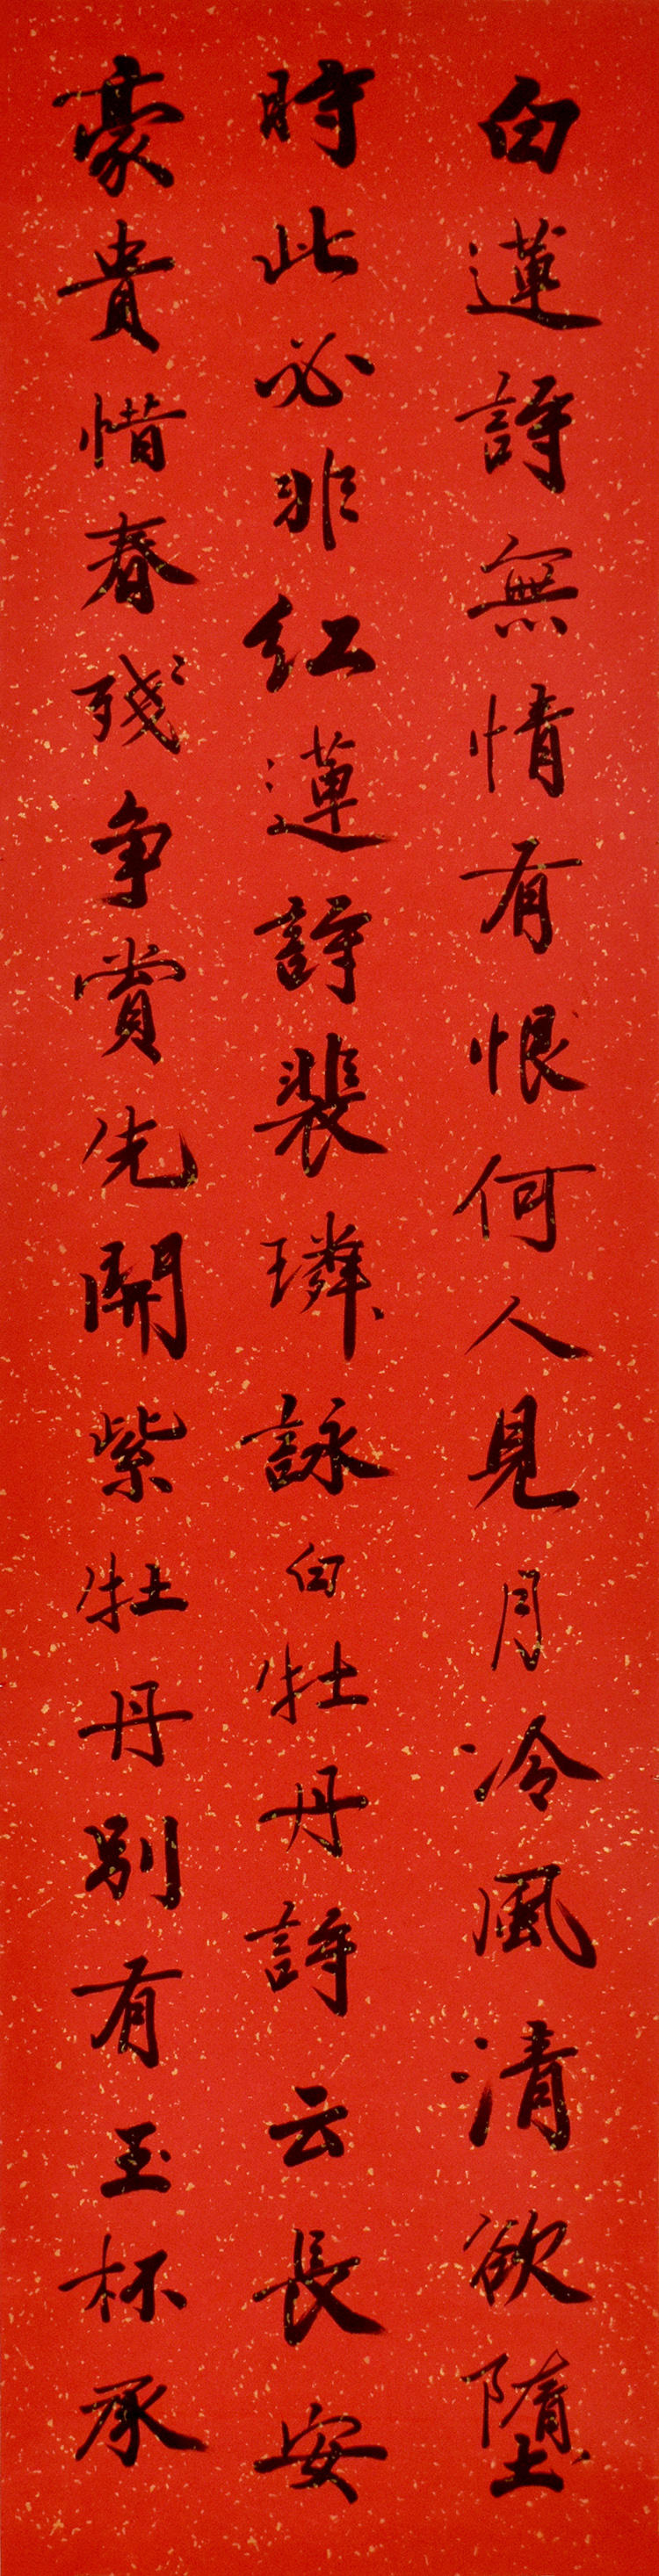 白蓮詩無情有恨何人見月冷風清欲墮
時此必非紅蓮詩裴璘詠白牡丹詩云長安
豪貴惜春殘争賞先開紫牡丹別有玉杯承